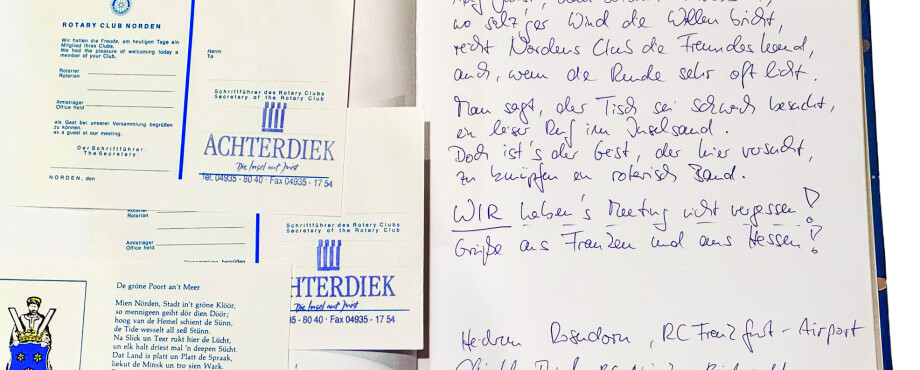 ROTARY CLUB NORDEN
Wir hatten die Freude, am heutigen Tage ein
Mitglied Ihres Clubs,
We had the pleasure of welcoming today a
member of your Club.
Rotarier
Rotarian
Amtsträger
Office held
als Gast bei unserer Versammlung begrüßen
zu können.
as a guest at our meeting.
Der Schriftführer:
The Secretary:
NORDEN, den
Herrn
To
Schriftführer des Rotary Clubs
Secretary of the Rotary Club
ACHTERDIEK
Die Insel auf Juist
Tel. 04935 - 80 40 · Fax 04935 - 17 54
Rotarian
Amtsträger
Office held
Versammlung begrüßen
Schriftführer des Rotary Clubs
Secretary of the Rotary Club
HTERDIEK
Die Insel auf Juist
35 - 80 40 · Fax 04935 - 17 54
De gröne Poort an't Meer
Mien Nörden, Stadt in't gröne Klöör,
so mennigeen geiht dör dien Döör;
hoog van de Hemel schient de Sünn,
de Tide wesselt all seß Stünn.
Na Slick un Teer rukt hier de Lücht,
un elk halt driest mal 'n deepen Sücht.
Dat Land is platt un Platt de Spraak,
liekut de Minsk un tro sien Wark.
wo salz'ger Wind die Wellen bricht,
reicht Nordens Club die Freundeshand,
auch, wenn die Runde sehr oft licht.
Man sagt, der Tisch sei schwach besucht,
ein leiser Ruf im Inselsand.
Doch ist's der Geist, der hier versucht,
zu knüpfen ein rotarisch Band.
WIR haben's Meeting nicht vergessen!
Grüße aus Franken und aus Hessen!
Rosendorn, RC Frankfurt-Airport